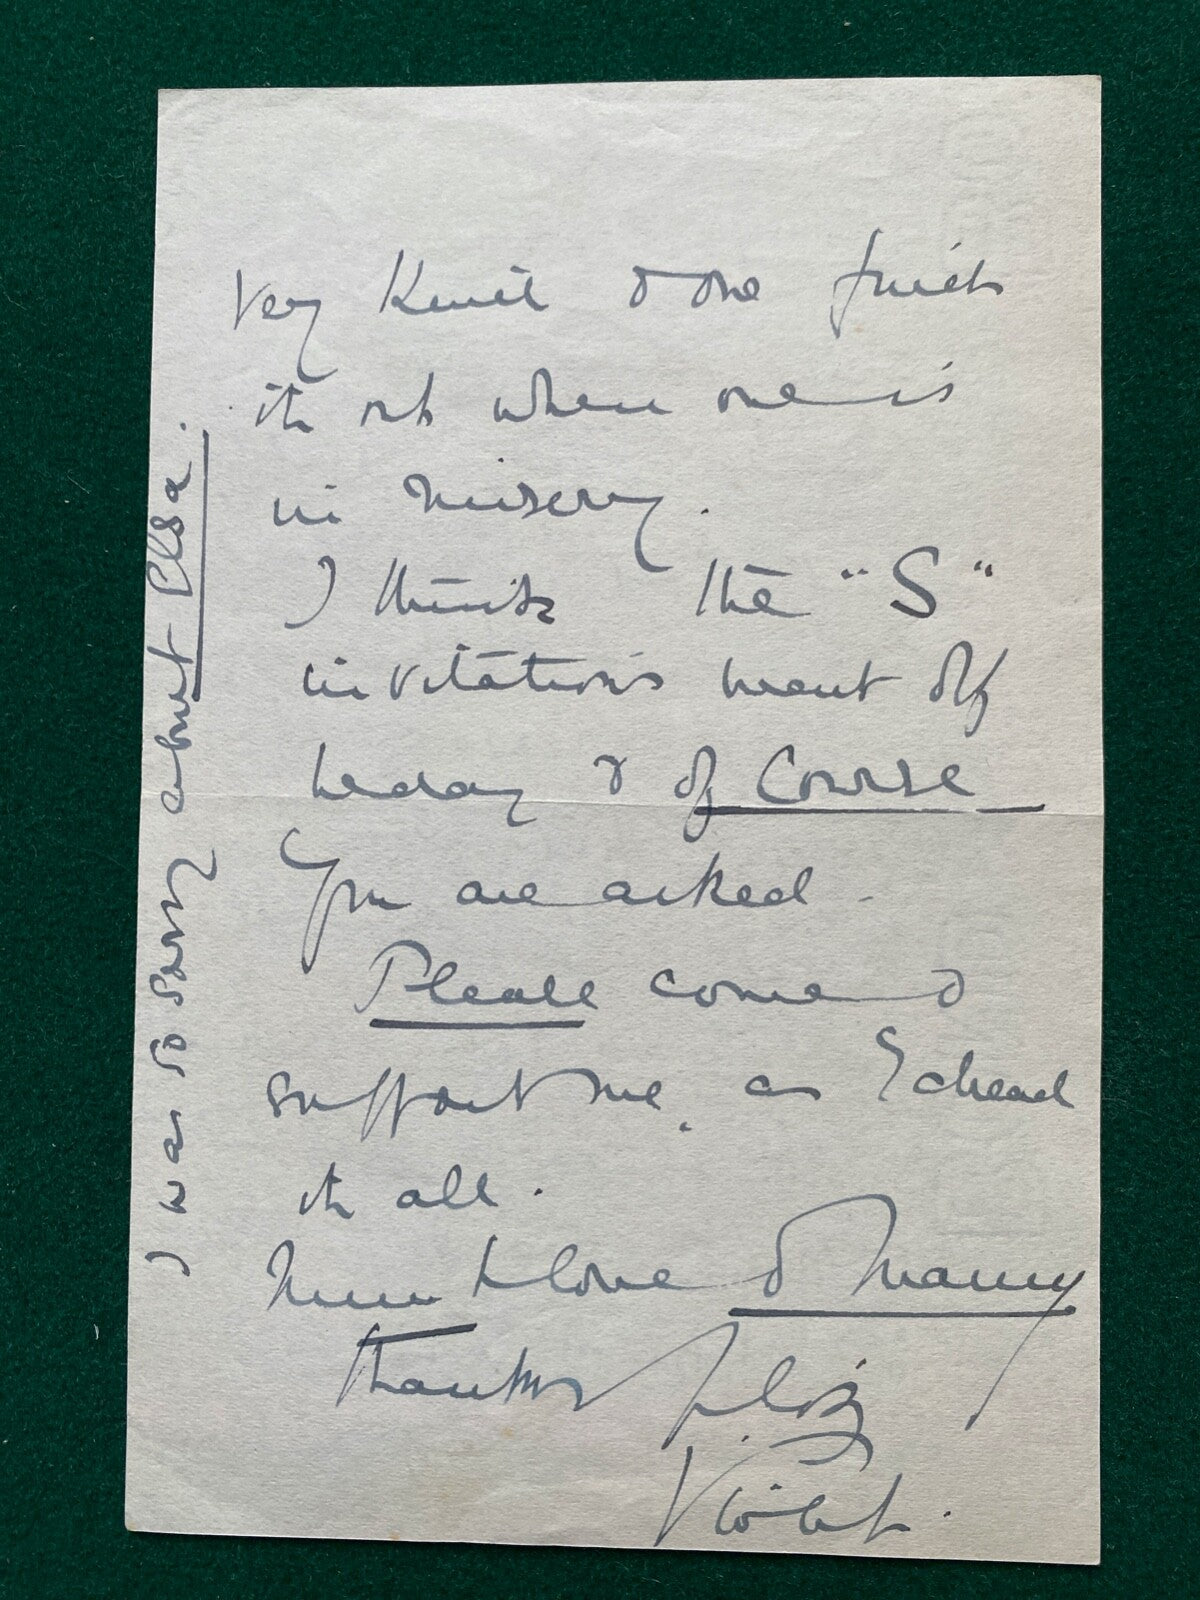 very kind & one finds
it out when one is
in misery.
I think the "S"
invitations went off
today & of course
you are asked.
Please come &
support me, as I dread
it all.
Much love & many
thanks
Violet.
I was so sorry about Elsa.